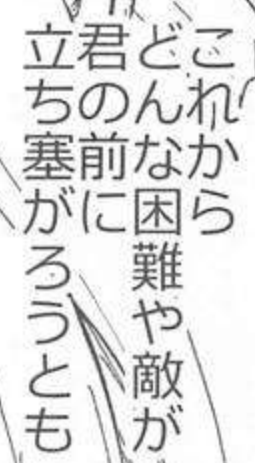 これから
どんな困難や敵が
君の前に
立ち塞がろうとも